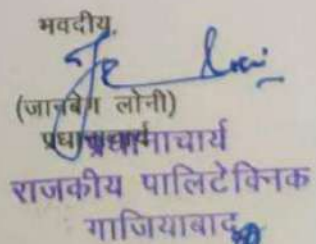 भवदीय,
(जानबेग लोनी)
प्रधानाचार्य
प्रधानाचार्य
राजकीय पालिटेक्निक
गाजियाबाद